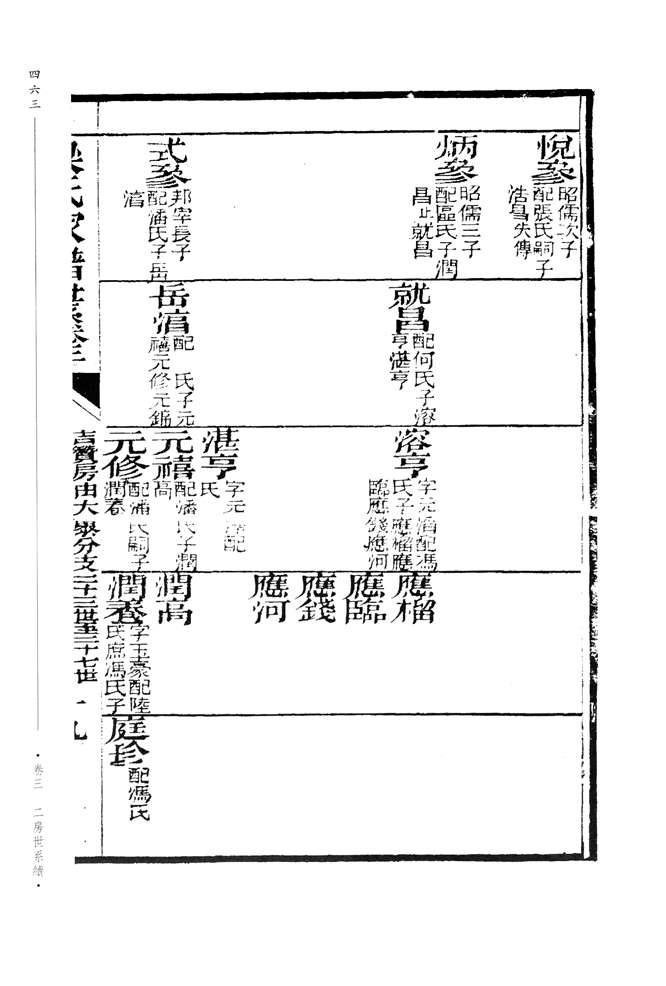 悅參
昭儒次子
配張氏嗣子
浩昌失傳
炳參
昭儒三子
配區氏子潤
昌止就昌
式參
邦宰長子
配潘氏子岳
湻
就昌
配何氏子溶
亨湛亨
岳湻
配 氏子元
禧元修元錦
溶亨
字元滔配馮
氏子應榴應
臨應錢應河
湛亨
字元 配
氏
元禧
配潘氏子潤
高
元修
配潘氏嗣子
潤春
應榴
應臨
應錢
應河
潤高
潤春
字玉豪配陸
氏庶馮氏子
庭珍
配馮氏
氏家譜世系卷三
房由大 分支二十三世至二十七世
十九
四六三
·卷三 二房世系續·